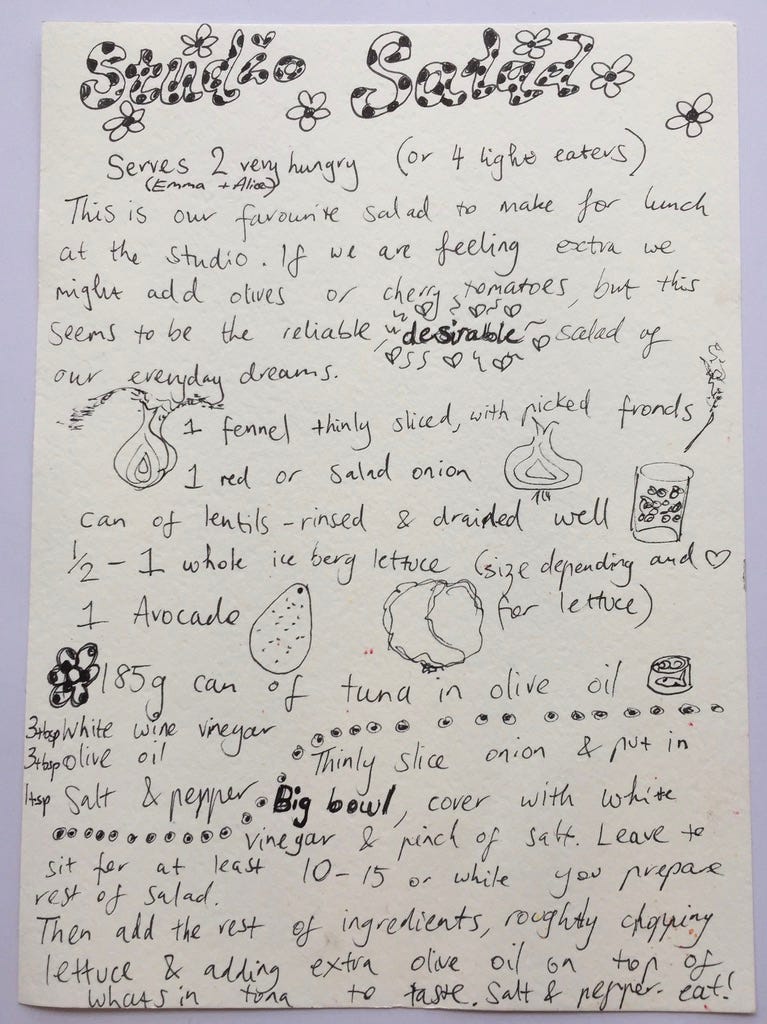 Studio Salad
Serves 2 very hungry (or 4 light eaters)
(Emma + Alice)
This is our favourite salad to make for lunch
at the studio. If we are feeling extra we
might add olives or cherry tomatoes, but this
seems to be the reliable, desirable salad of
our everyday dreams.
1 fennel thinly sliced, with picked fronds
1 red or salad onion
can of lentils - rinsed & draided well
1/2 - 1 whole ice berg lettuce (size depending and ♡
for lettuce)
1 Avocado
185g can of tuna in olive oil
3tbsp White wine vinegar
3tbsp olive oil
1tsp Salt & pepper
Thinly slice onion & put in
Big bowl, cover with white
vinegar & pinch of salt. Leave to
sit for at least 10-15 or while you prepare
rest of salad.
Then add the rest of ingredients, roughtly chopping
lettuce & adding extra olive oil on top of
whats in tuna to taste. Salt & pepper. eat!